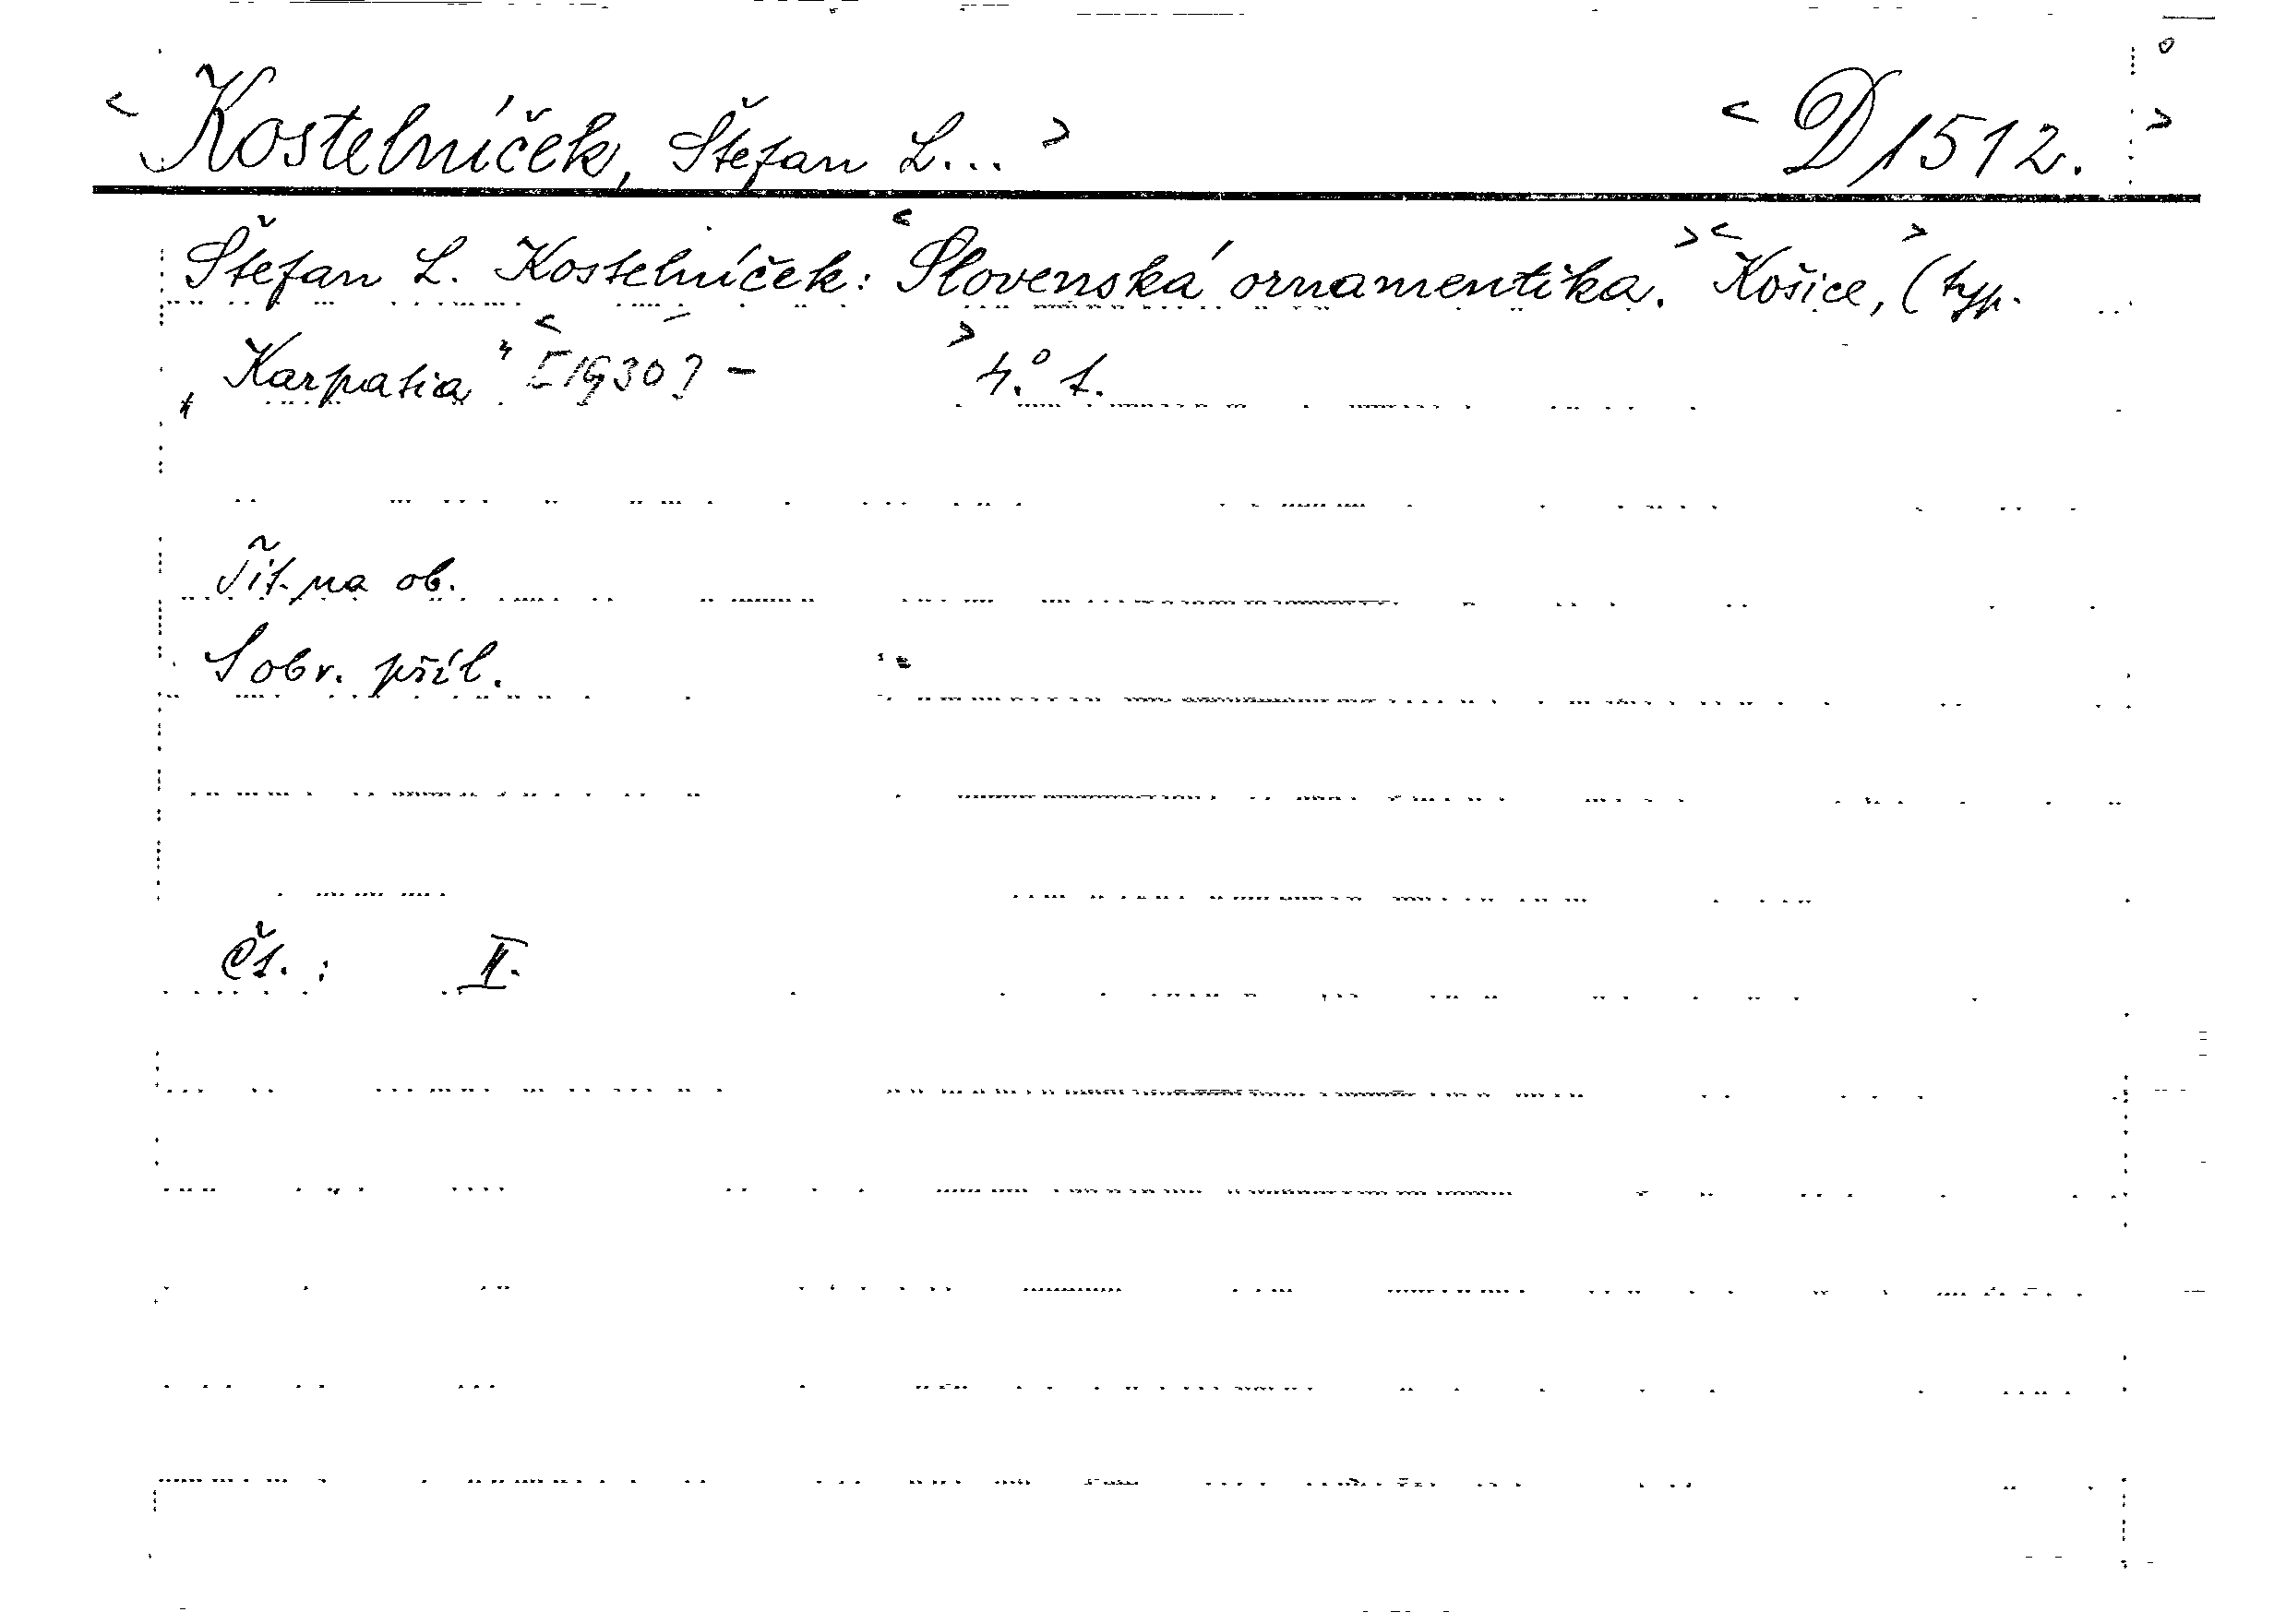 < Kostelníček, Štefan L... > < D 1512. >
Štefan L. Kostelníček: < Slovenská ornamentika. > < Košice, > (typ.
„Karpatia" < [1930? - > 4.° 1.
Tit. na ob.
S obr. příl.
Čs. : II.